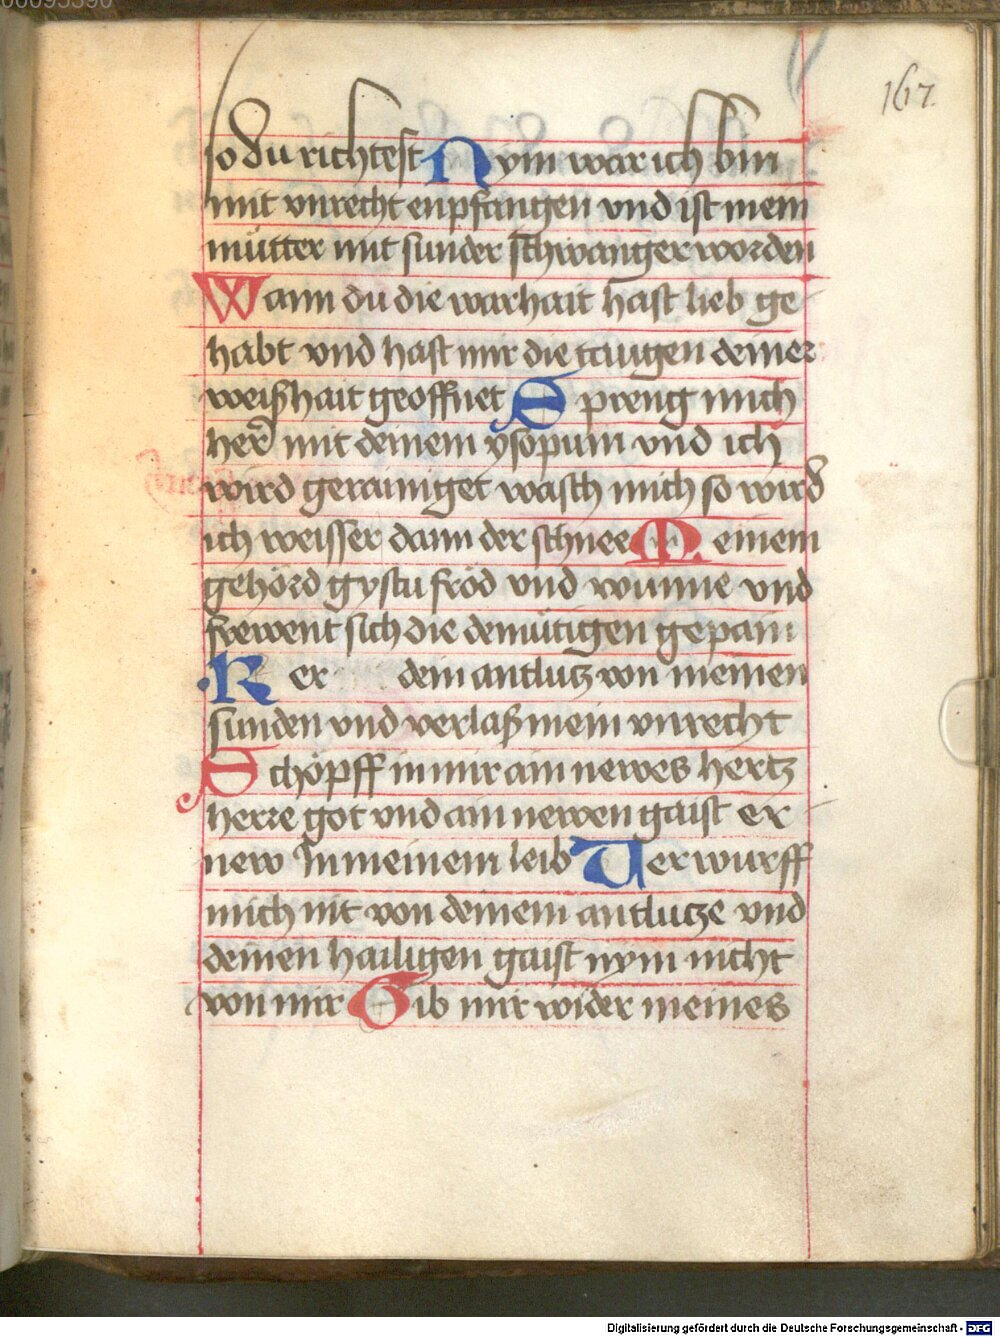 00095390
167
so du richtest Nym war ich bin
mit vnrecht enpfangen vnd ist mein
mutter mit sunder schwanger worden
Wann du die warhait hast lieb ge
habt vnd hast mir die taugen deiner
weißhait geoffnet Spreng mich
her mit deinem ysopum vnd ich
wird gerainiget wasch mich so wird
ich weisser dann der schnee Meinem
gehörd gystu fröd vnd wunne vnd
frewent sich die demütigen gepain
Ker dein antlutz von meinen
sunden vnd verlaß mein vnrecht
Schöpff in mir ain newes hertz
herre got vnd ain newen gaist er
new In meinem leib Verwurff
mich nit von deinem antlutze vnd
deinen hailigen gaist nym nicht
von mir Gib mir wider meines
Digitalisierung gefördert durch die Deutsche Forschungsgemeinschaft - DFG